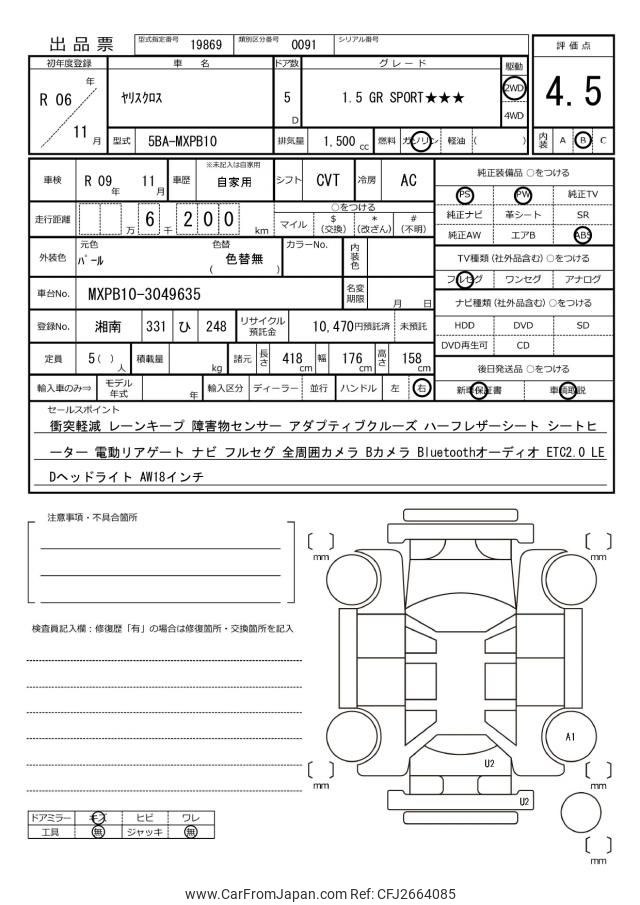 出品票 型式指定番号 19869 類別区分番号 0091 シリアル番号
評価点
4.5
内装 A B C
初年度登録 車名 ドア数 グレード 駆動
R 06 年 11 月 ヤリスクロス 5 D 1.5 GR SPORT★★★ 2WD 4WD
型式 5BA-MXPB10 排気量 1,500 cc 燃料 ガソリン 軽油 ( )
車検 R 09 年 11 月 車歴 ※未記入は自家用 自家用 シフト CVT 冷房 AC
走行距離 万 6 千 2 0 0 km
○をつける
マイル $(交換) *(改ざん) #(不明)
外装色 元色 パール 色替 ( 色替無 ) カラーNo. 内装色
車台No. MXPB10-3049635 名変期限 月 日
登録No. 湘南 331 ひ 248 リサイクル預託金 10,470円預託済 未預託
定員 5( ) 人 積載量 kg 諸元 長さ 418 cm 幅 176 cm 高さ 158 cm
輸入車のみ⇒ モデル年式 年 輸入区分 ディーラー 並行 ハンドル 左 右
純正装備品 ○をつける
PS PW 純正TV
純正ナビ 革シート SR
純正AW エアB ABS
TV種類(社外品含む) ○をつける
フルセグ ワンセグ アナログ
ナビ種類(社外品含む) ○をつける
HDD DVD SD
DVD再生可 CD
後日発送品 ○をつける
新車保証書 車輌取説
セールスポイント
衝突軽減 レーンキープ 障害物センサー アダプティブクルーズ ハーフレザーシート シートヒ
ーター 電動リアゲート ナビ フルセグ 全周囲カメラ Bカメラ Bluetoothオーディオ ETC2.0 LE
Dヘッドライト AW18インチ
注意事項・不具合箇所
検査員記入欄：修復歴「有」の場合は修復箇所・交換箇所を記入
ドアミラー キズ ヒビ ワレ
工具 無 ジャッキ 無
[ ] mm
[ ] mm
A1
U2
[ ] mm
[ ] mm
U2
[ ] mm
www.CarFromJapan.com Ref: CFJ2664085